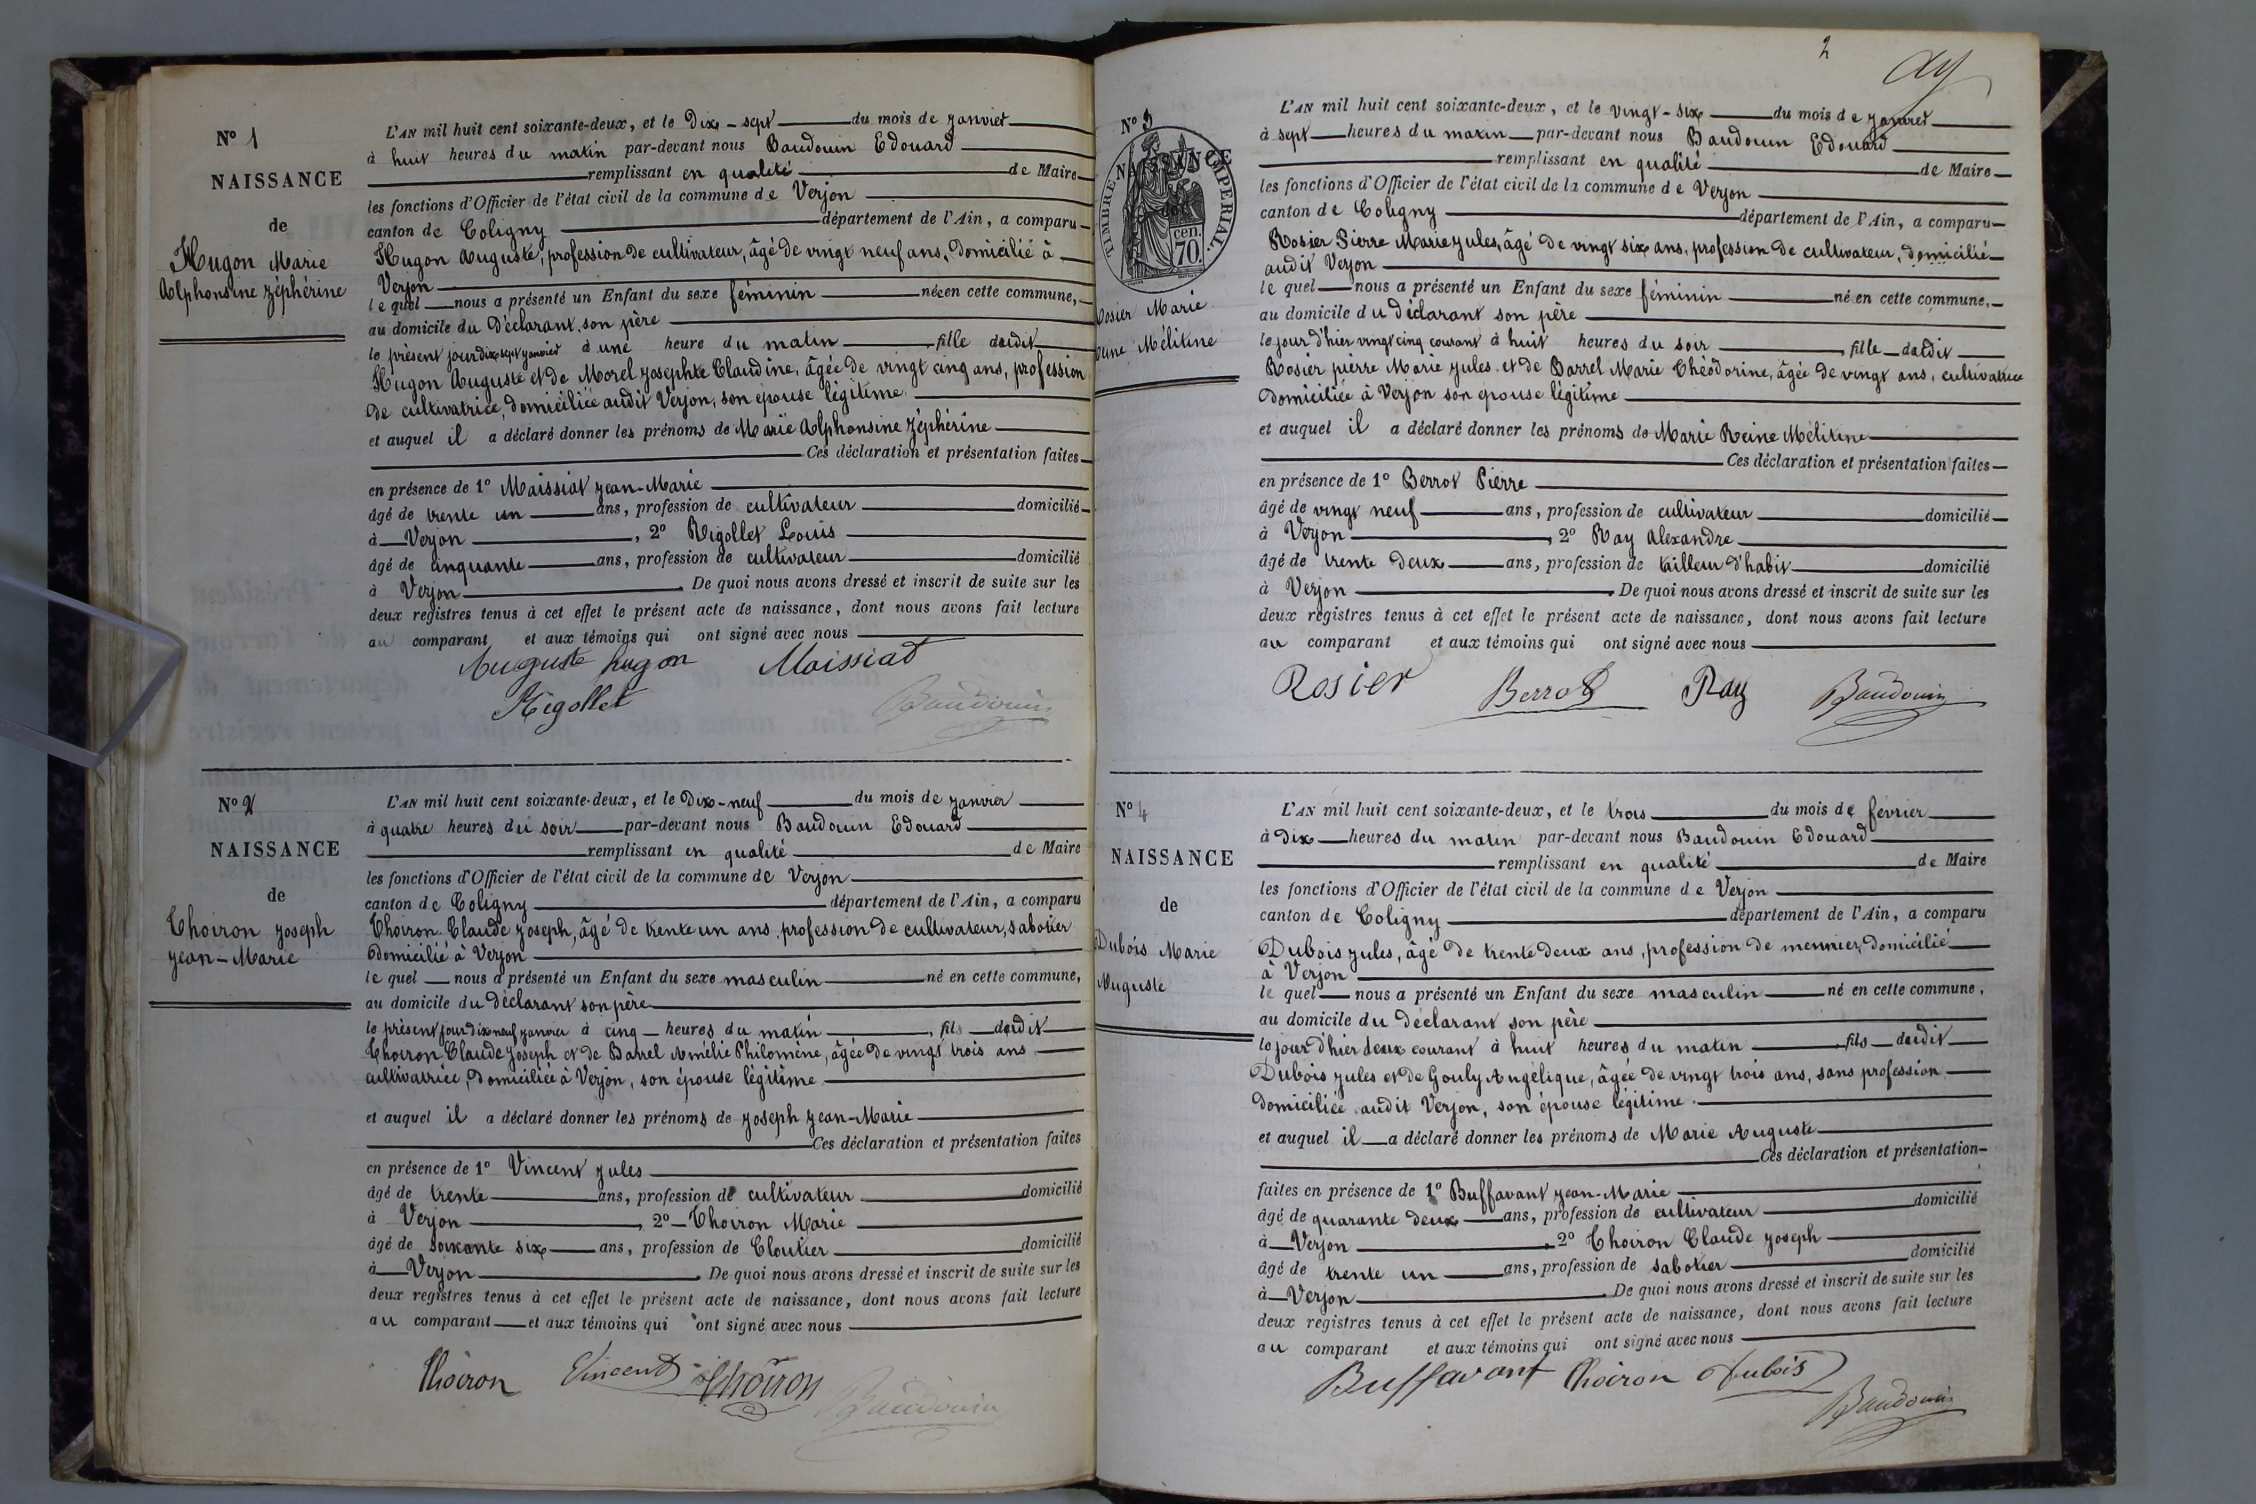 N° 1
NAISSANCE
de
Hugon Marie
Alphonsine Zéphérine
L'AN mil huit cent soixante-deux, et le Dix-sept du mois de janvier
à huit heures du matin par-devant nous Baudouin Edouard
remplissant en qualité de Maire
les fonctions d'Officier de l'état civil de la commune de Verjon
canton de Coligny département de l'Ain, a comparu
Hugon Auguste, profession de cultivateur, âgé de vingt neuf ans, domicilié à
Verjon
le quel nous a présenté un Enfant du sexe féminin née en cette commune,
au domicile du Déclarant, son père
le présent jour dix sept janvier à une heure du matin fille dudit
Hugon Auguste et de Morel Josephte Claudine, âgée de vingt cinq ans, profession
de cultivatrice, domiciliée audit Verjon, son épouse légitime
et auquel il a déclaré donner les prénoms de Marie Alphonsine Zéphérine
Ces déclaration et présentation faites
en présence de 1° Maissiat Jean-Marie
âgé de trente un ans, profession de cultivateur domicilié
à Verjon, 2° Rigollet Louis
âgé de cinquante ans, profession de cultivateur domicilié
à Verjon. De quoi nous avons dressé et inscrit de suite sur les
deux registres tenus à cet effet le présent acte de naissance, dont nous avons fait lecture
au comparant et aux témoins qui ont signé avec nous
Auguste hugon Maissiat
Rigollet Baudouin
N° 2
NAISSANCE
de
Thoiron Joseph
Jean-Marie
L'AN mil huit cent soixante-deux, et le Dix-neuf du mois de janvier
à quatre heures du soir par-devant nous Baudouin Edouard
remplissant en qualité de Maire
les fonctions d'Officier de l'état civil de la commune de Verjon
canton de Coligny département de l'Ain, a comparu
Thoiron Claude Joseph, âgé de trente un ans, profession de cultivateur, sabotier
domicilié à Verjon
le quel nous a présenté un Enfant du sexe masculin né en cette commune,
au domicile du déclarant son père
le présent jour dix neuf janvier à cinq heures du matin, fils dudit
Thoiron Claude Joseph et de Barrel Amélie Philomène, âgée de vingt trois ans
cultivatrice, domiciliée à Verjon, son épouse légitime
et auquel il a déclaré donner les prénoms de Joseph Jean-Marie
Ces déclaration et présentation faites
en présence de 1° Vincent Jules
âgé de trente ans, profession de cultivateur domicilié
à Verjon, 2° Thoiron Marie
âgé de soixante six ans, profession de Cloutier domicilié
à Verjon. De quoi nous avons dressé et inscrit de suite sur les
deux registres tenus à cet effet le présent acte de naissance, dont nous avons fait lecture
au comparant et aux témoins qui ont signé avec nous
Thoiron Vincent Thoiron
Baudouin
2
N° 3
NAISSANCE
TIMBRE IMPERIAL
70 cen.
Rosier Marie
Reine Mélitine
L'AN mil huit cent soixante-deux, et le vingt-six du mois de janvier
à sept heures du matin par-devant nous Baudouin Edouard
remplissant en qualité de Maire
les fonctions d'Officier de l'état civil de la commune de Verjon
canton de Coligny département de l'Ain, a comparu
Rosier Pierre Marie Jules, âgé de vingt six ans, profession de cultivateur, domicilié
audit Verjon
le quel nous a présenté un Enfant du sexe féminin né en cette commune,
au domicile du déclarant son père
le jour d'hier vingt cinq courant à huit heures du soir, fille dudit
Rosier pierre Marie Jules et de Barrel Marie Théodorine, âgée de vingt ans, cultivatrice
domiciliée à Verjon son épouse légitime
et auquel il a déclaré donner les prénoms de Marie Reine Mélitine
Ces déclaration et présentation faites
en présence de 1° Berrot Pierre
âgé de vingt neuf ans, profession de cultivateur domicilié
à Verjon, 2° Ray Alexandre
âgé de trente deux ans, profession de tailleur d'habit domicilié
à Verjon. De quoi nous avons dressé et inscrit de suite sur les
deux registres tenus à cet effet le présent acte de naissance, dont nous avons fait lecture
au comparant et aux témoins qui ont signé avec nous
Rosier Berrot Ray Baudouin
N° 4
NAISSANCE
de
Dubois Marie
Auguste
L'AN mil huit cent soixante-deux, et le trois du mois de février
à dix heures du matin par-devant nous Baudouin Edouard
remplissant en qualité de Maire
les fonctions d'Officier de l'état civil de la commune de Verjon
canton de Coligny département de l'Ain, a comparu
Dubois Jules, âgé de trente deux ans, profession de meunier, domicilié
à Verjon
le quel nous a présenté un Enfant du sexe masculin né en cette commune,
au domicile du déclarant son père
le jour d'hier deux courant à huit heures du matin, fils dudit
Dubois Jules et de Gouly Angélique, âgée de vingt trois ans, sans profession
domiciliée audit Verjon, son épouse légitime.
et auquel il a déclaré donner les prénoms de Marie Auguste
Ces déclaration et présentation
faites en présence de 1° Buffavant Jean-Marie
âgé de quarante deux ans, profession de cultivateur domicilié
à Verjon, 2° Thoiron Claude Joseph
âgé de trente un ans, profession de sabotier domicilié
à Verjon. De quoi nous avons dressé et inscrit de suite sur les
deux registres tenus à cet effet le présent acte de naissance, dont nous avons fait lecture
au comparant et aux témoins qui ont signé avec nous
Buffavant Thoiron Dubois
Baudouin